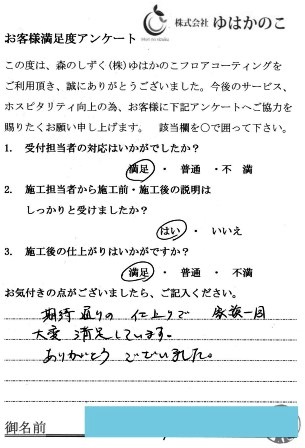 株式会社 ゆはかのこ
お客様満足度アンケート
この度は、森のしずく(株)ゆはかのこフロアコーティングを
ご利用頂き、誠にありがとうございました。今後のサービス、
ホスピタリティ向上の為、お客様に下記アンケートへご協力を
賜りたくお願い申し上げます。 該当欄を○で囲って下さい。
1. 受付担当者の対応はいかがでしたか?
満足 ・ 普通 ・不 満
2. 施工担当者から施工前・施工後の説明は
しっかりと受けましたか?
はい ・ いいえ
3. 施工後の仕上がりはいかがですか?
満足 ・ 普通 ・ 不満
お気付きの点がございましたら、ご記入ください。
期待通りの 仕上りで 家族一同
大変 満足しています。
ありがとう ございました。
御名前